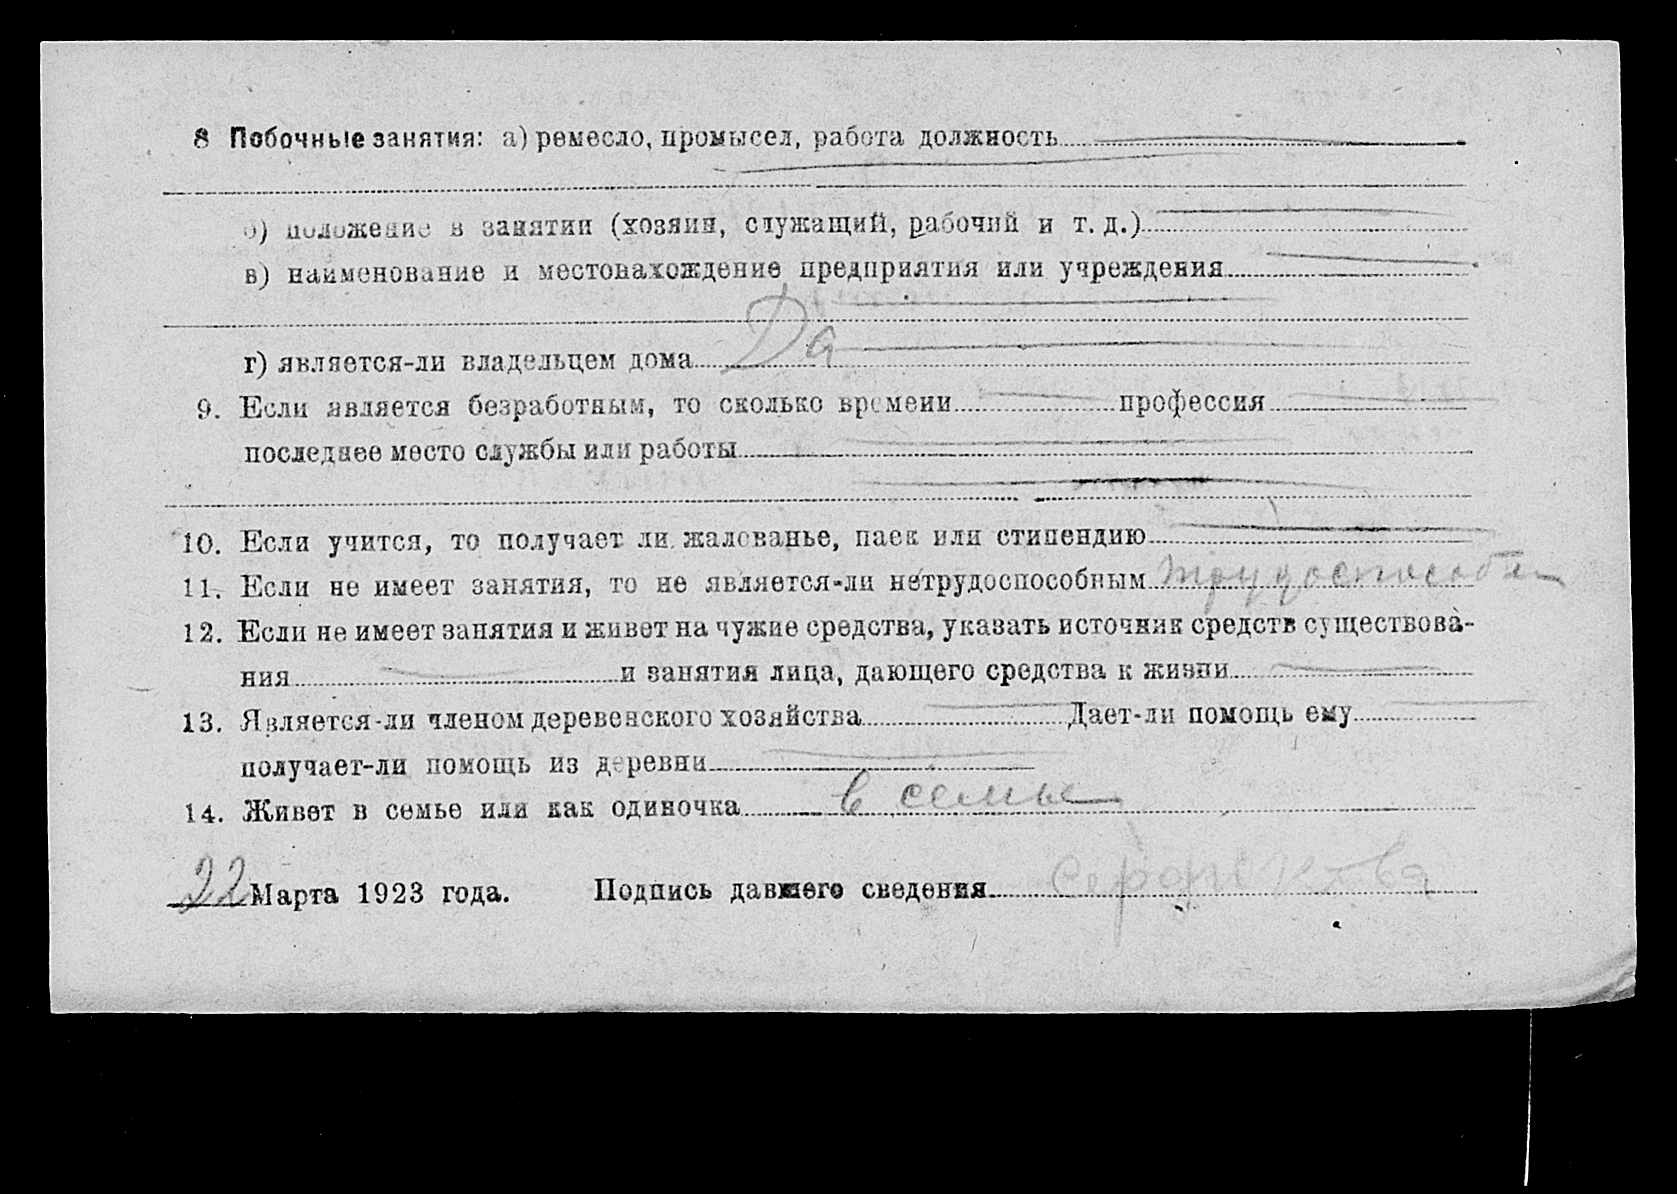 8 Побочные занятия: а) ремесло, промысел, работа должность
б) положение в занятии (хозяин, служащий, рабочий и т. д.)
в) наименование и местонахождение предприятия или учреждения
г) является-ли владельцем дома Да
9. Если является безработным, то сколько времени профессия
последнее место службы или работы
10. Если учится, то получает ли жалованье, паек или стипендию
11. Если не имеет занятия, то не является-ли нетрудоспособным трудоспособен
12. Если не имеет занятия и живет на чужие средства, указать источник средств существова-
ния и занятия лица, дающего средства к жизни
13. Является-ли членом деревенского хозяйства Дает-ли помощь ему
получает-ли помощь из деревни
14. Живет в семье или как одиночка в семье
22 Марта 1923 года. Подпись давшего сведения